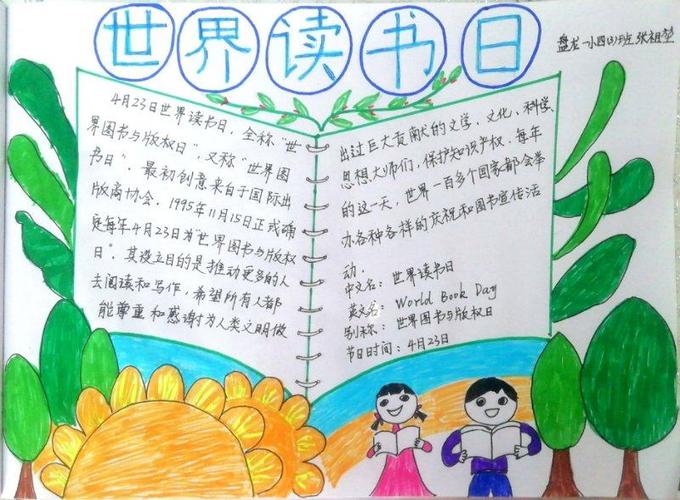 世界读书日
盘龙一小四(3)班 张祖
4月23日世界读书日，全称"世
界图书与版权日"，又称"世界图
书日"．最初创意来自于国际出
版商协会．1995年11月15日正式确
定每年4月23日为"世界图书与版权
日"．其设立目的是推动更多的人
去阅读和写作，希望所有人都
能尊重和感谢为人类文明做
出过巨大贡献的文学、文化、科学、
思想大师们，保护知识产权．每年
的这一天，世界一百多个国家都会举
办各种各样的庆祝和图书宣传活
动．
中文名：世界读书日
英文名：World Book Day
别称：世界图书与版权日
节日时间：4月23日